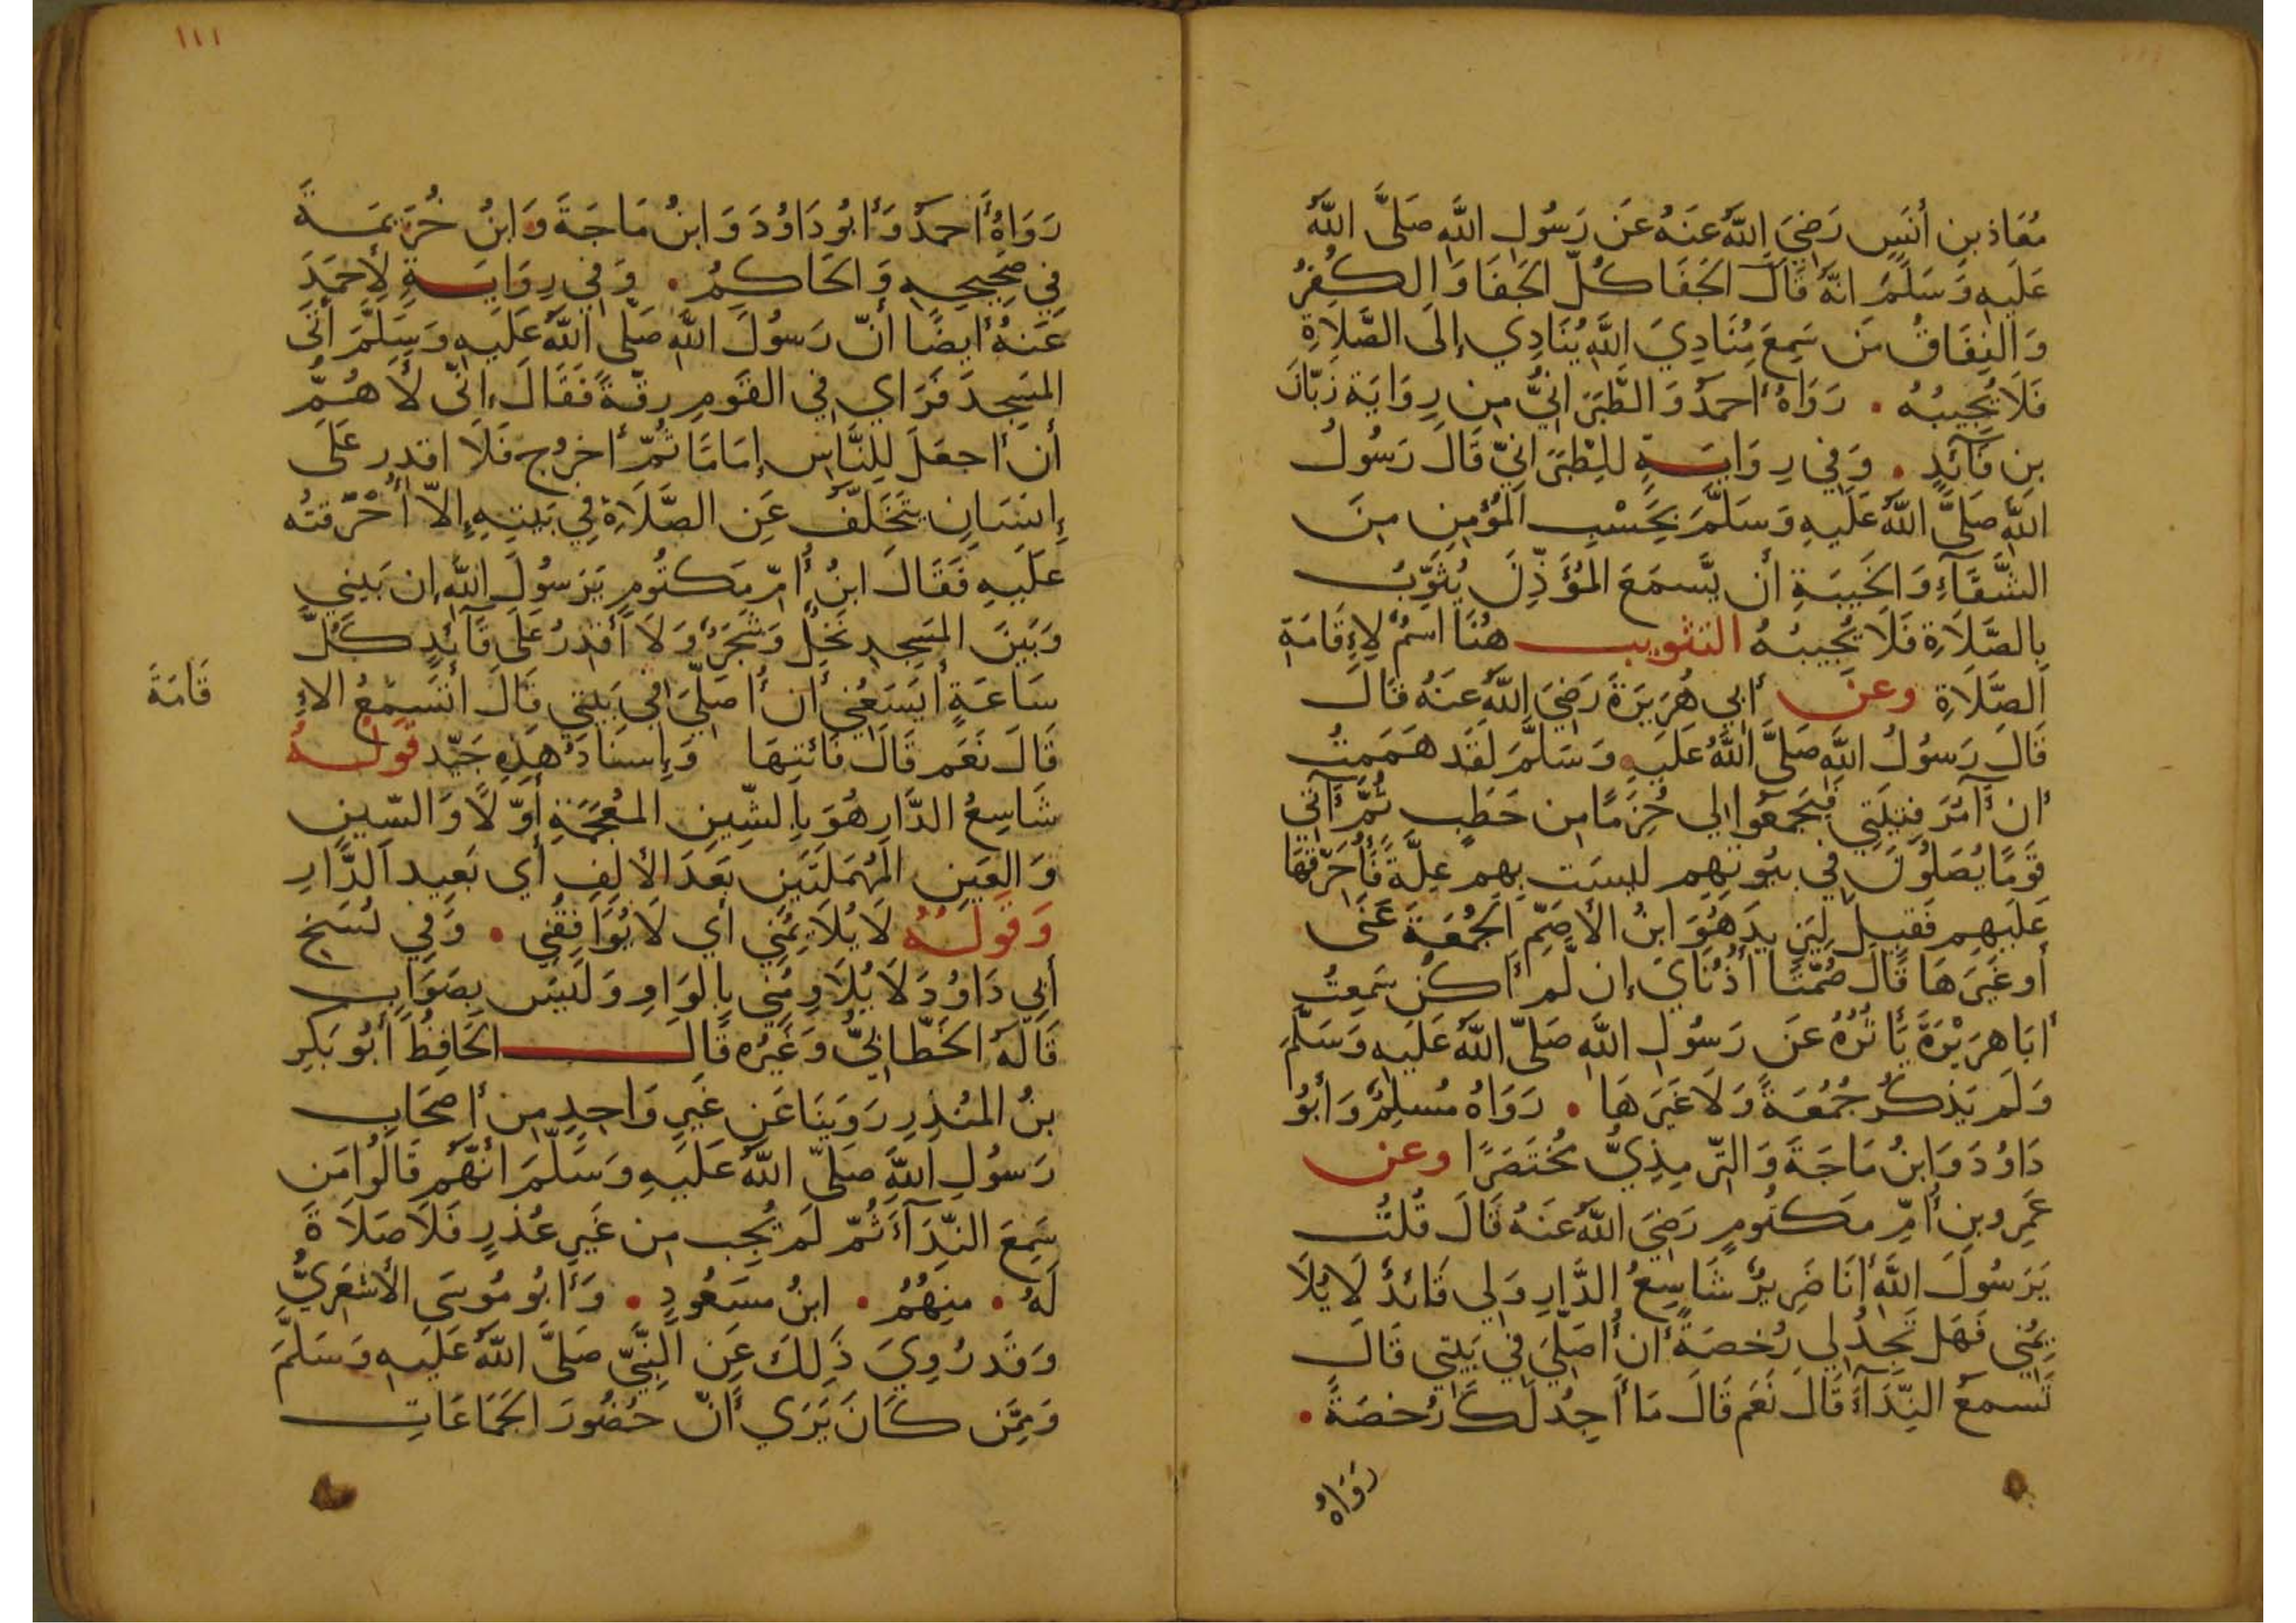 مُعَاذ بِن أَنَسٍ رَضِيَ اللَّهُ عَنهُ عَن رَسُولِ اللَّهِ صَلَّى اللَّهُ
عَلَيهِ وَسَلَّمَ انَّهُ قَالَ الجَفَا كُلّ الجَفَا وَالكُفرُ
وَالنِفَاقُ مَن سَمِعَ مُنَادِيَ اللَّهِ يُنَادِي إِلَى الصَّلَاةِ
فَلَا يُجِيبُهُ . رَوَاهُ أَحمَدُ وَالطَّبَرَانِيُّ مِن رِوَايَة زَبَّانَ
بنِ فَآئِدٍ . وَفِي رِوَايَةٍ لِلطَّبَرَانِيّ قَالَ رَسُولُ
اللَّهِ صَلَّى اللَّهُ عَلَيهِ وَسَلَّمَ بِحَسْبِ المُؤمِنِ مِنَ
الشَّقَآءِ وَالخَيبَةِ أَن يَّسمَعَ المُؤَذِّنَ يُثَوِّبُ
بِالصَّلَاةِ فَلَا يُجِيبُهُ التثويب هُنَا اسمٌ لِإِقَامَةِ
الصَّلَاةِ وعن أَبِي هُرَيرَةَ رَضِيَ اللَّهُ عَنهُ قَالَ
قَالَ رَسُولُ اللَّهِ صَلَّى اللَّهُ عَلَيهِ وَسَلَّمَ لَقَد هَمَمتُ
أَن آمُرَ فِتيَتِي فَيَجمَعُوا لِي حُزَمًا مِن حَطَبٍ ثُمَّ آتِي
قَومًا يُصَلُّونَ فِي بُيُوتِهِم لَيسَت بِهِم عِلَّةٌ فَأُحَرِّقُهَا
عَلَيهِم فَقِيلَ لِيَزِيدَ هُوَ ابنُ الأَصَمّ الجُمُعَةَ عَنَى
أَو غَيرَهَا قَالَ صُمَّتَا أُذُنَايَ إِن لَّم أَكُن سَمِعتُ
أَبَا هرَيْرَةَ يَأثُرُهُ عَن رَسُولِ اللَّهِ صَلَّى اللَّهُ عَلَيهِ وَسَلَّمَ
وَلَم يَذكُر جُمُعَةً وَلَا غَيرَهَا . رَوَاهُ مُسلِمٌ وَأَبُو
دَاوُدَ وَابنُ مَاجَةَ وَالتِّرمِذِيُّ مُختَصَرًا وعن
عَمرِو بنِ أُمّ مَكتُومٍ رَضِيَ اللَّهُ عَنهُ قَالَ قُلتُ
يَرَسُولَ اللَّهِ أَنَا ضَرِيرٌ شَاسِعُ الدَّارِ وَلِي قَائدٌ لَا يُلَا
يِمُنِي فَهَل تَجِدُ لِي رُخصَةً أَن أُصَلِّيَ فِي بَيتِي قَالَ
تَسمعُ النِّدَآءَ قَالَ نَعَم قَالَ مَا أَجِدُ لَكَ رُخصَةً .
رَوَاهُ
١١١
رَوَاهُ أَحمَدُ وَأَبُو دَاوُدَ وَابنُ مَاجَةَ وَابنُ خُزَيمَةَ
فِي صَحِيحِهِ وَالحَاكِمُ . وَفِي رِوَايَةٍ لِأَحمَدَ
عَنهُ أَيضًا أَنّ رَسُولَ اللَّهِ صَلَّى اللَّهُ عَلَيهِ وَسَلَّمَ أَتَى
المَسجِدَ فَرَاي فِي القَومِ رِقَّةً فَقَالَ إِنّى لَأَهُمُّ
أَن أَجعَلَ لِلنَّاسِ إِمَامًا ثُمّ أَخرُج فَلَا اقدِر عَلَى
إِنسَانٍ يَتَخَلَّف عَنِ الصَّلَاةِ فِي بَيتِهِ إِلَّا أَحْرَقتُه
عَلَيهِ فَقَالَ ابنُ أُمّ مَكتُومٍ يَرَسُولَ اللَّهِ إِن بَينِي
وَبَينَ المَسجِدِ نَخلٌ وَشَجَرٌ وَلَا أَقدِرُ عَلَى قَآئدٍ كُلَّ
سَاعَةٍ أَيَسَعُنِي أَن أُصَلِّيَ فِي بَيتِي قَالَ أَتَسمَعُ الإِ
قَامَةَ
قَالَ نَعَم قَالَ فَائتِهَا وَإِسنَادُ هَذِهِ جَيّد قوله
شَاسِعُ الدَّارِ هُوَ بِالشّينِ المُعجَمَةِ أَوّلًا وَالسّينِ
وَالعَينِ المُهمَلَتَينِ بَعدَ الأَلِفِ أَي بَعِيد الدَّارِ
وَقوله لَا يُلَايِمُنِي أَي لَا يُوَافِقُنِي . وَفِي نُسَخِ
أَبِي دَاوُدَ لَا يُلَاوِمُنِي بِالوَاوِ وَلَيسَ بِصَوَابٍ
قَالَهُ الخَطَّابِيُّ وَغَيرُه قَالَ الحَافِظُ أَبُو بَكرِ
بنُ المُنذِرِ رَوَينَا عَن غَيرِ وَاحِدٍ مِن أَصحَابِ
رَسُولِ اللَّهِ صَلَّى اللَّهُ عَلَيهِ وَسَلَّمَ أَنَّهُم قَالُوا مَن
سَمِعَ النِّدَآءَ ثُمّ لَم يُجِب مِن غَيرِ عُذرٍ فَلَا صَلَاةَ
لَهُ . مِنهُمُ . ابنُ مسَعُودٍ . وَأَبُو مُوسَى الأَشعَرِيُّ
وَقَد رُوِيَ ذَلِكَ عَنِ النَّبِيّ صَلَّى اللَّهُ عَلَيهِ وَسَلَّمَ
وَمِمَّن كَانَ يَرَي أَنّ حُضُورَ الجَمَاعَاتِ